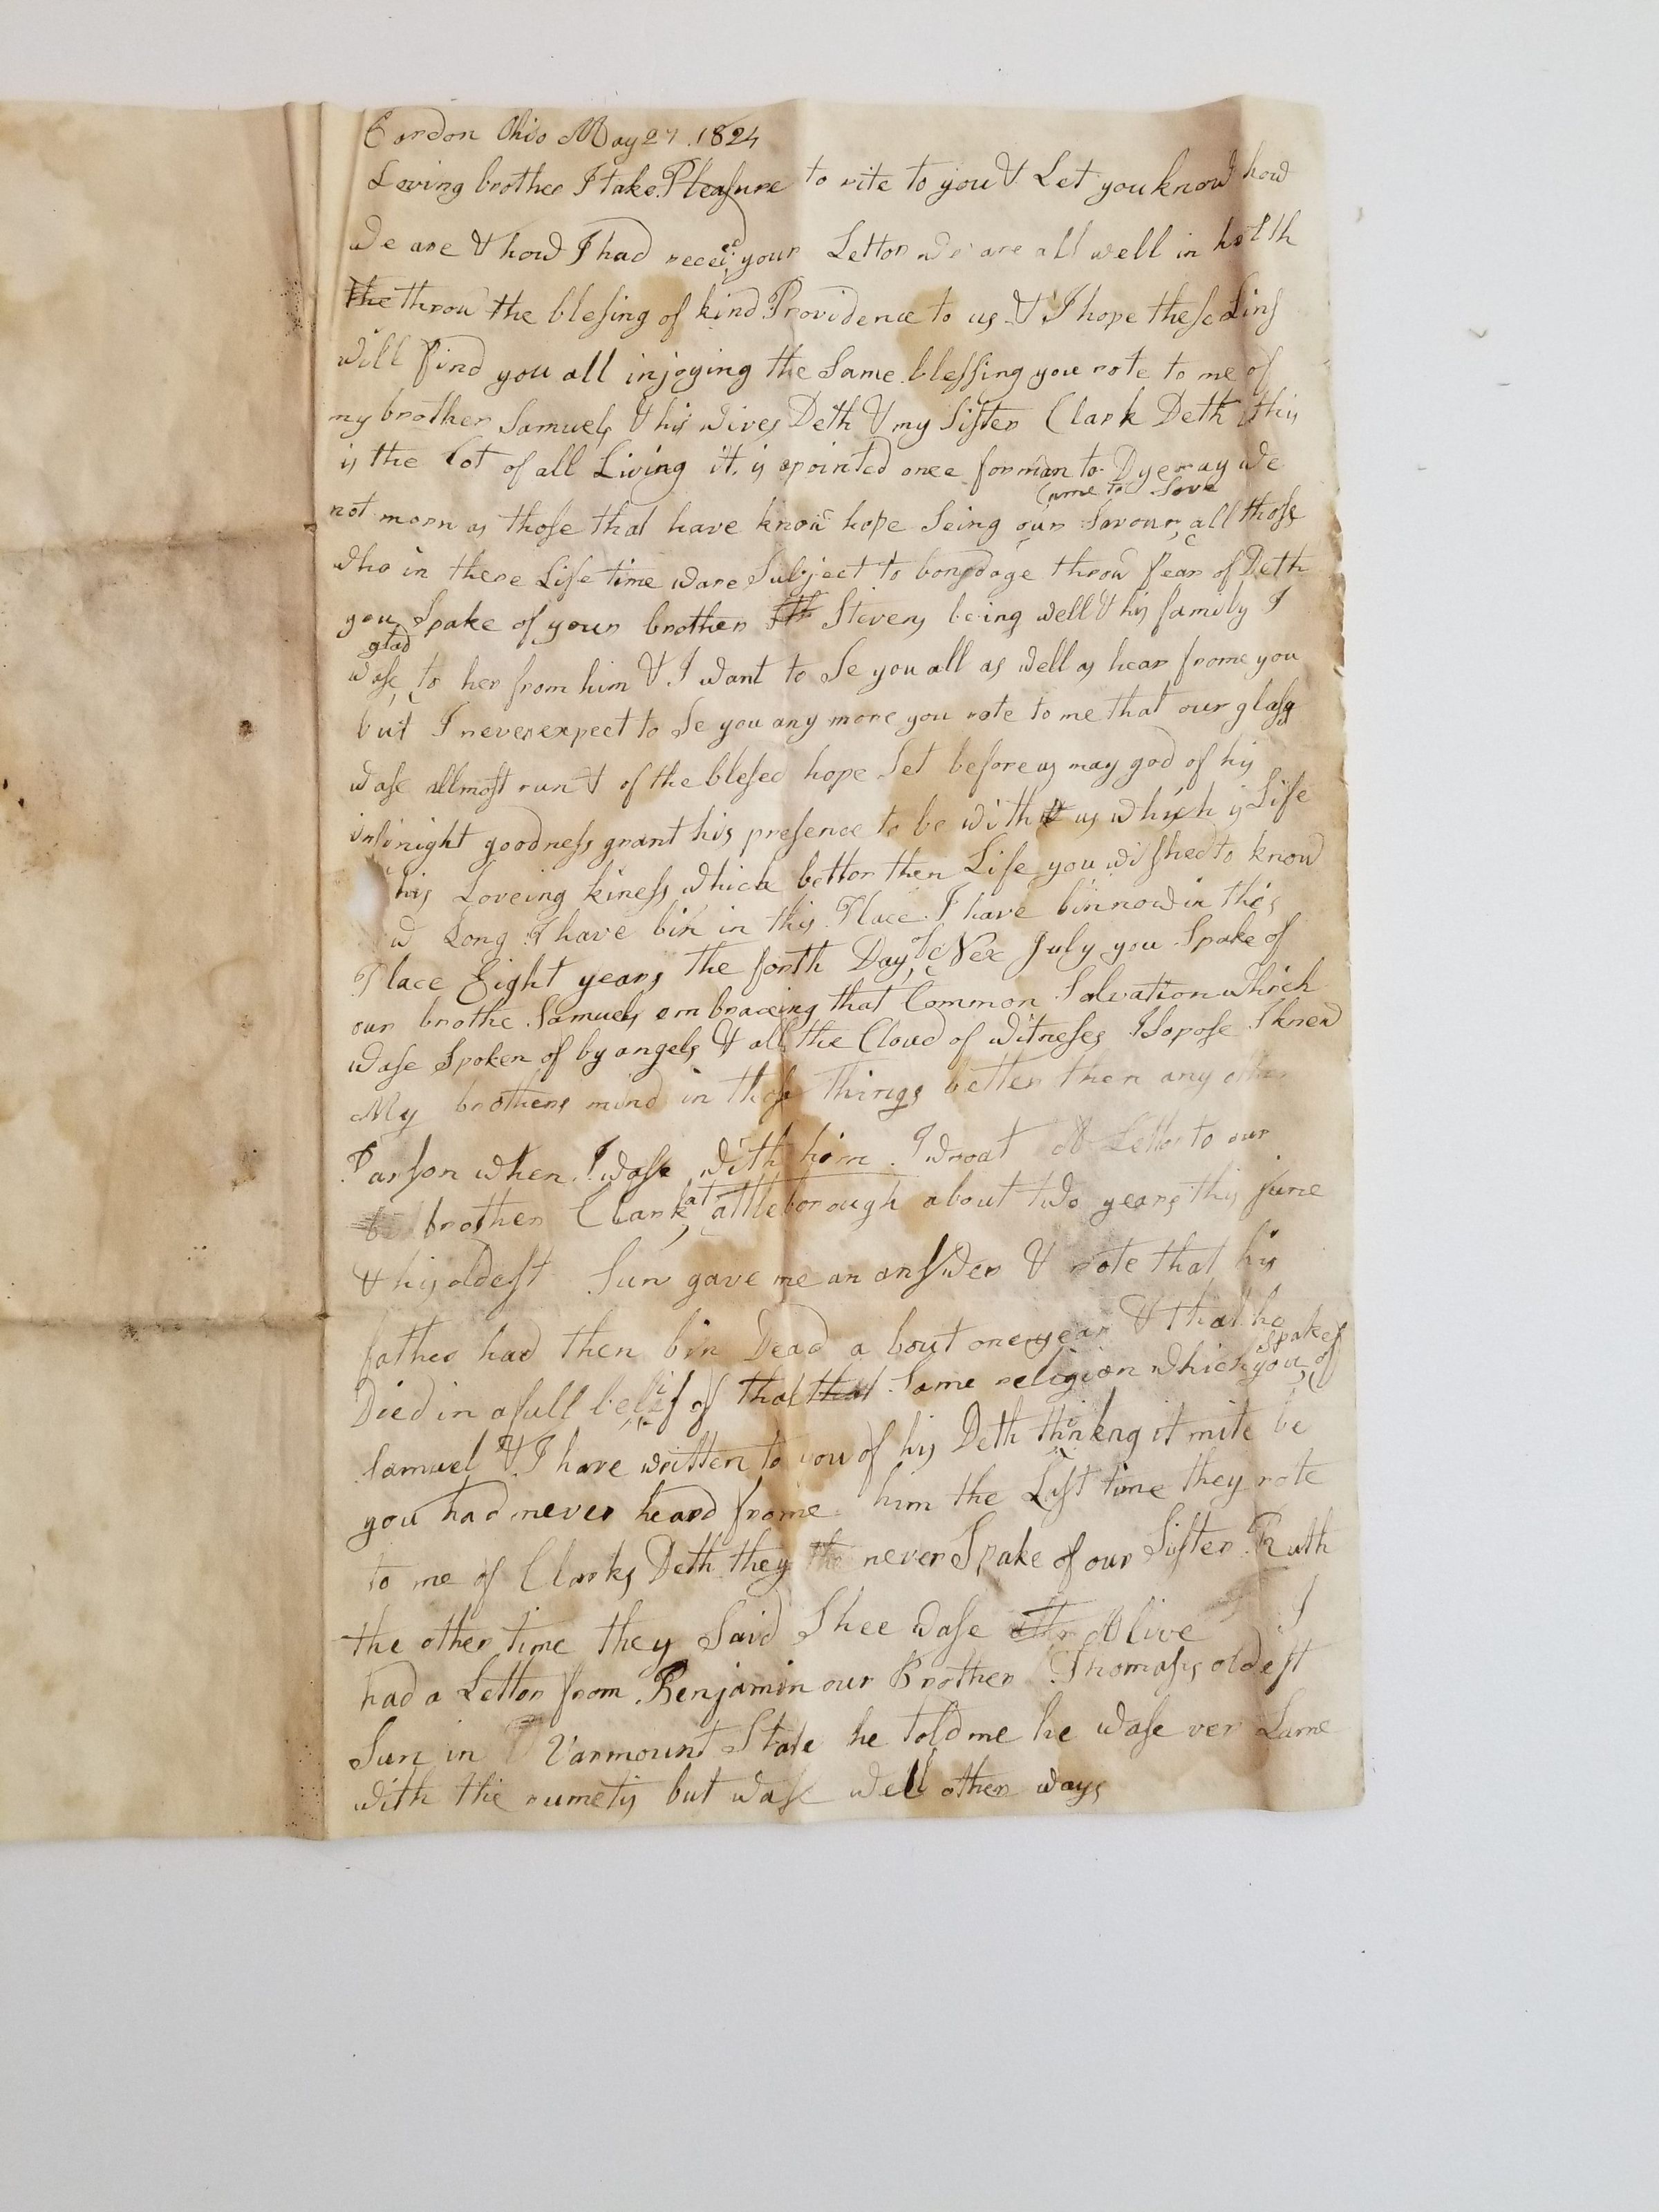 Cardon Ohio May 27. 1824
Loving brother I take Pleasure to rite to you & Let you know how
we are & how I had receied your Letter we are all well in helth
the throw the blesing of kind Providence to us & I hope these Lins
will find you all injoying the Same blessing you rote to me of
my brother Samuels & his wives Deth & my Sister Clark Deth this
is the Lot of all Living it is apointed once for man to Dye may we
come to Save
not morn as those that have know hope Seing our Savour all those
who in there Life time ware Subject to bondage throw fear of Deth
you Spake of your brother Stivens being well & his family I
glad
wase to her from him & I want to Se you all as well as hear frome you
but I never expect to Se you any more you rote to me that our glass
wase allmost run & of the blesed hope Set before us may god of his
infinight goodness grant his presence to be with us which is Life
his Loveing kiness which better then Life you wished to know
w Long I have bin in this Place I have bin now in this
Place Eight years the forth Day of Nex July you Spake of
our brothe Samuels embraceing that Common Salvation which
wase Spoken of by angels & all the Cloud of witneses I Sopose I knew
My brothers mind in those things better then any other
Parson when I wase with him I wroat A Letter to our
brother Clark at attleborough about two years this june
& his oldest Sun gave me an answer & rote that his
father had then bin Dead a bout one year & that he
Died in a full belief of that that Same religion which you Spake of of
Samuel & I have written to you of his Deth thinkng it mite be
you had never heard frome him the Last time they rote
to me of Clarks Deth they the never Spake of our Sister Ruth
the other time they Said Shee wase Alive I
had a Letter from Benjamin our Brother Thomasis oldest
Sun in Varmount State he told me he wase ver Lame
with the rumetis but wase well other ways